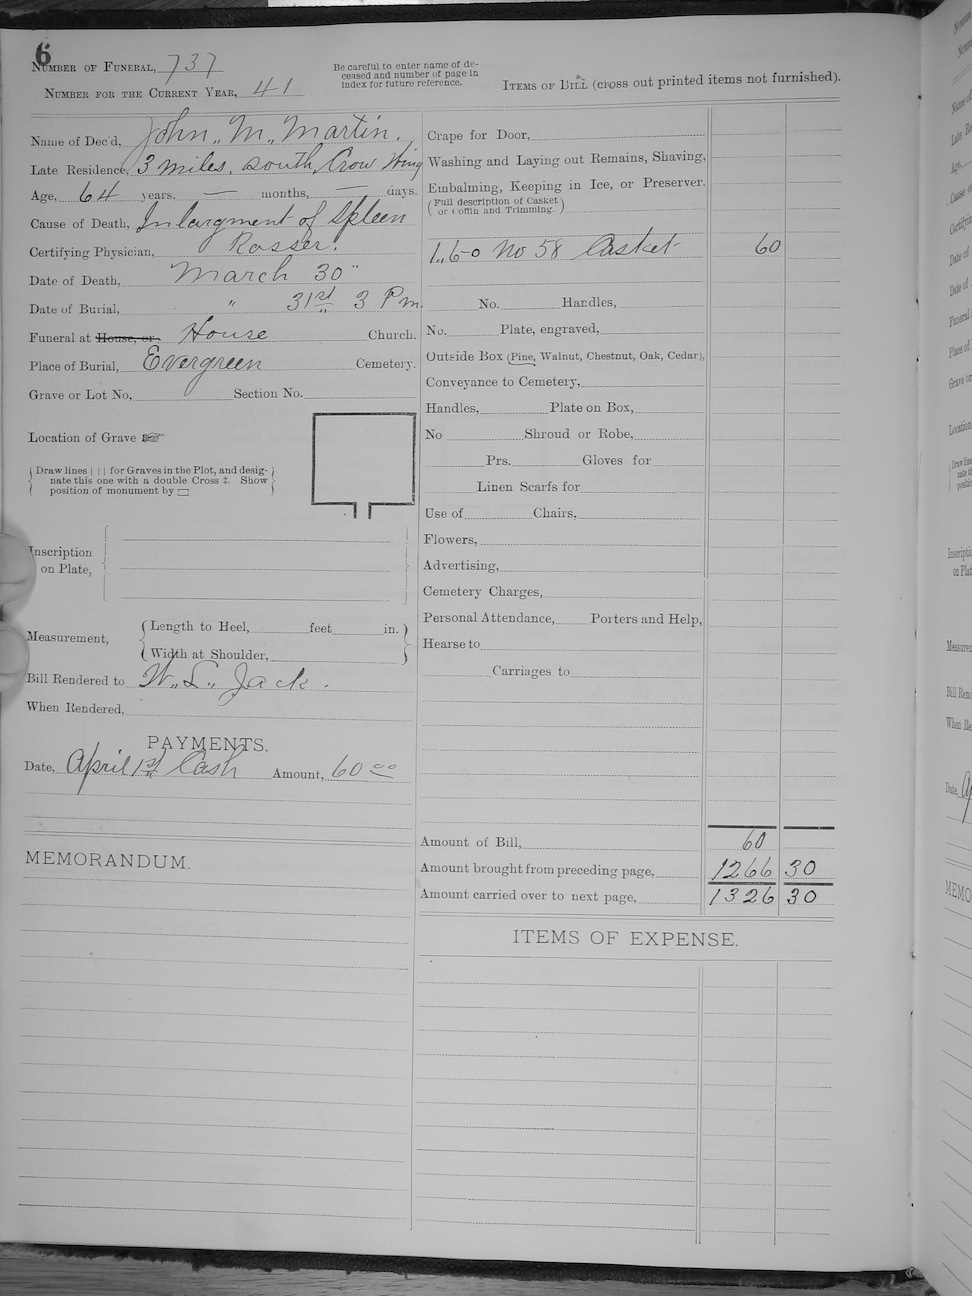 6
NUMBER OF FUNERAL, 737
NUMBER FOR THE CURRENT YEAR, 41
Be careful to enter name of de-
ceased and number of page in
index for future reference.
ITEMS OF BILL (cross out printed items not furnished).
Name of Dec'd, John, M, Martin.
Late Residence, 3 miles, south, Crow Wing
Age, 64 years, — months, — days.
Cause of Death, Inlargment of Spleen
Certifying Physician, Rosser.
Date of Death, March 30"
Date of Burial, " 31st 3 P m.
Funeral at House, or House Church.
Place of Burial, Evergreen Cemetery.
Grave or Lot No, Section No.
Location of Grave ☞
Draw lines | | | for Graves in the Plot, and desig-
nate this one with a double Cross ‡. Show
position of monument by ▭
Inscription
on Plate,
Measurement,
Length to Heel, feet in.
Width at Shoulder,
Bill Rendered to W. L. Jack.
When Rendered,
PAYMENTS.
Date, April 1st Cash Amount, 60 00
MEMORANDUM.
Crape for Door,
Washing and Laying out Remains, Shaving,
Embalming, Keeping in Ice, or Preserver.
(Full description of Casket
or Coffin and Trimming.)
1, 6-0 No 58 Casket 60
No. Handles,
No. Plate, engraved,
Outside Box (Pine, Walnut, Chestnut, Oak, Cedar),
Conveyance to Cemetery,
Handles, Plate on Box,
No Shroud or Robe,
Prs. Gloves for
Linen Scarfs for
Use of Chairs,
Flowers,
Advertising,
Cemetery Charges,
Personal Attendance, Porters and Help,
Hearse to
Carriages to
Amount of Bill, 60
Amount brought from preceding page, 1266 30
Amount carried over to next page, 1326 30
ITEMS OF EXPENSE.